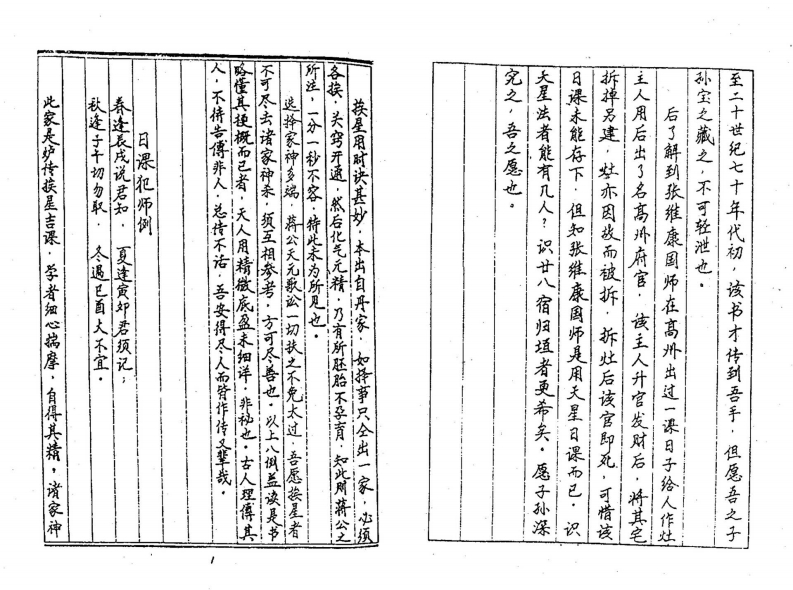 至二十世纪七十年代初，该书才传到吾手，但愿吾之子
孙宝之藏之，不可轻泄也。
后了解到张维康国师在高州出过一课日子给人作灶
主人用后出了名高州府官，该主人升官发财后，将其宅
拆掉另建，灶亦因故而被拆，拆灶后该官即死，可惜该
日课未能存下，但知张维康国师是用天星日课而已，识
天星法者能有几人？识廿八宿归垣者更希矣。愿子孙深
究之，吾之愿也。
挨星用时诀甚妙，本出自丹家，如择事只全出一家，必须
各挨，头窍开通，然后化气元精，乃有所胚胎不孕育，知此用蒋公之
所注，一分一秒不容，特此未为所见也。
选择家神多端，蒋公天元歌讼一切扶之不免太过，吾愿挨星者
不可尽去诸家神杀，须互相参考，方可尽善也。以上八例益诀是书
略懂其梗概而已者，天人用精微底盈未细详，非秘也。古人理傳其
人，不待告傳非人，总恃不活，吾安得尽人而皆作传又辈哉。
日课犯师例
春逢辰戌说君知，夏逢寅卯君须记；
秋逢子午切勿取，冬遇巳酉大不宜。
此家是妒传挨星吉课，学者细心揣摩，自得其精，诸家神
1